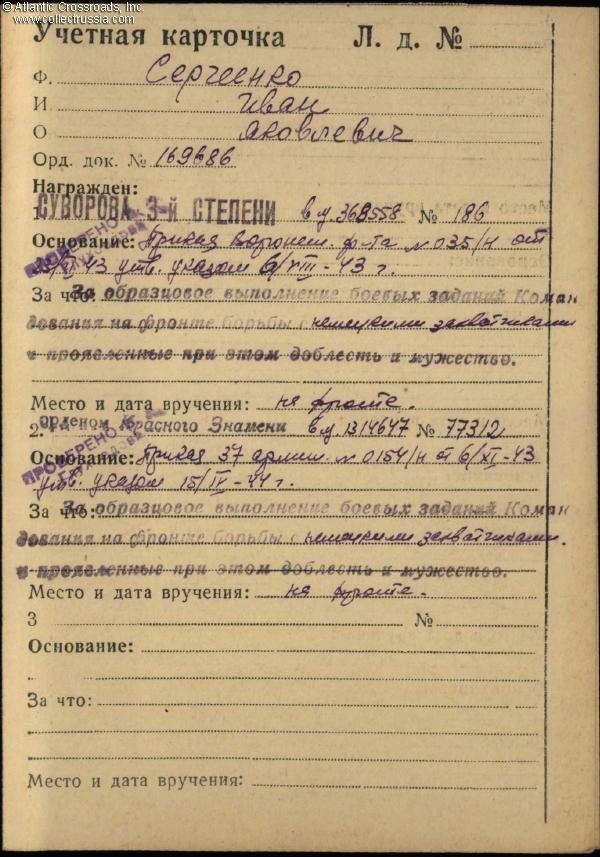 © Atlantic Crossroads, Inc.
www.collectrussia.com
Учетная карточка Л. д. №
Ф. Сергиенко
И Иван
О Яковлевич
Орд. док. № 169686
Награжден:
1. СУВОРОВА 3-й СТЕПЕНИ в.у. 368558 № 186
Основание: Приказ Воронеж. фр-та № 035/н от
43 утв. указом 6/VIII-43 г.
За что: За образцовое выполнение боевых заданий Коман
дования на фронте борьбы с немецкими захватчиками
и проявленные при этом доблесть и мужество.
Место и дата вручения: на фронте.
2. орденом Красного Знамени в.у 1314647 № 77312
ПРОВЕРЕНО
Основание: Приказ 37 армии № 0154/н от 6/XI-43
утв. указом 15/IV-44 г.
За что: За образцовое выполнение боевых заданий Коман
дования на фронте борьбы с немецкими захватчиками.
и проявленные при этом доблесть и мужество.
Место и дата вручения: на фронте.
3 №
Основание:
За что:
Место и дата вручения: